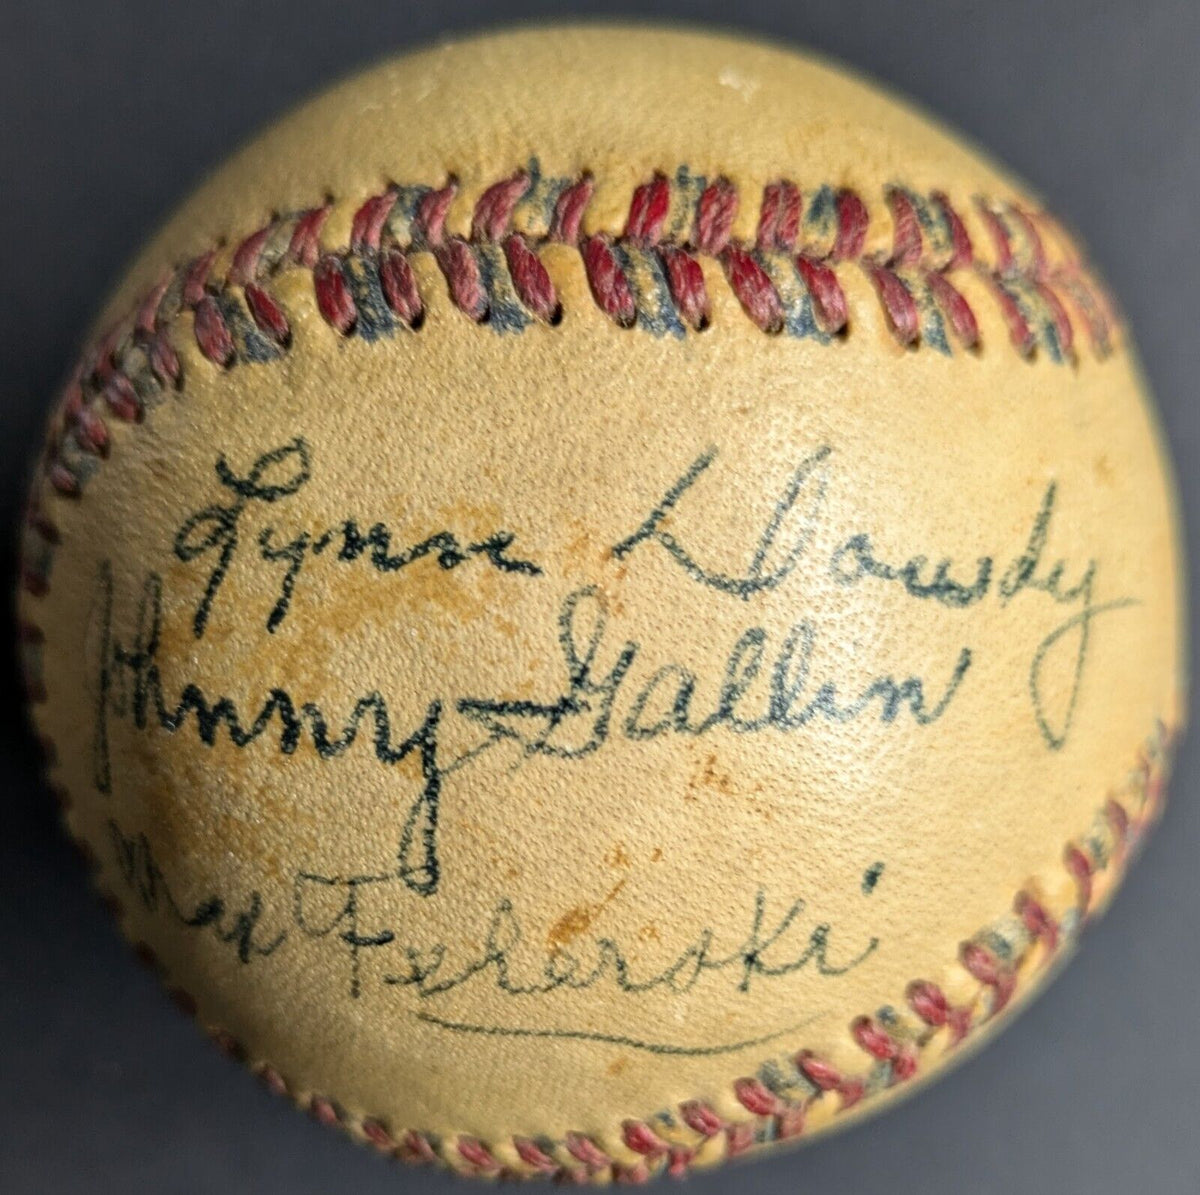 Lynn Dowdy
Johnny Gallin
Max Feherski